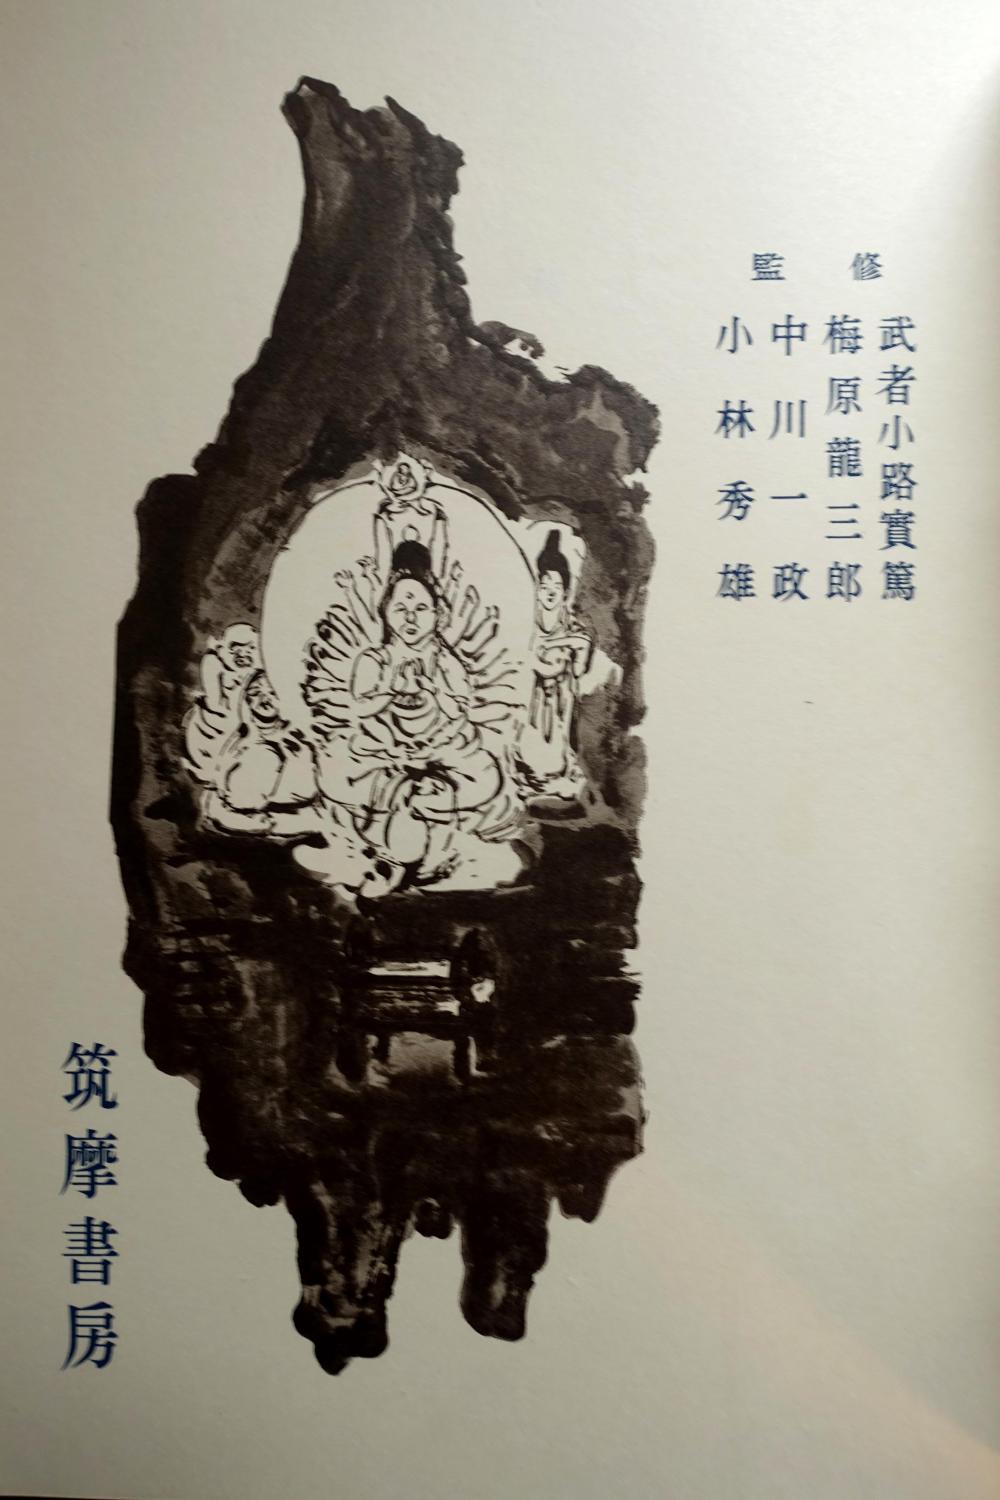 監修
武者小路實篤
梅原龍三郎
中川一政
小林秀雄
筑摩書房